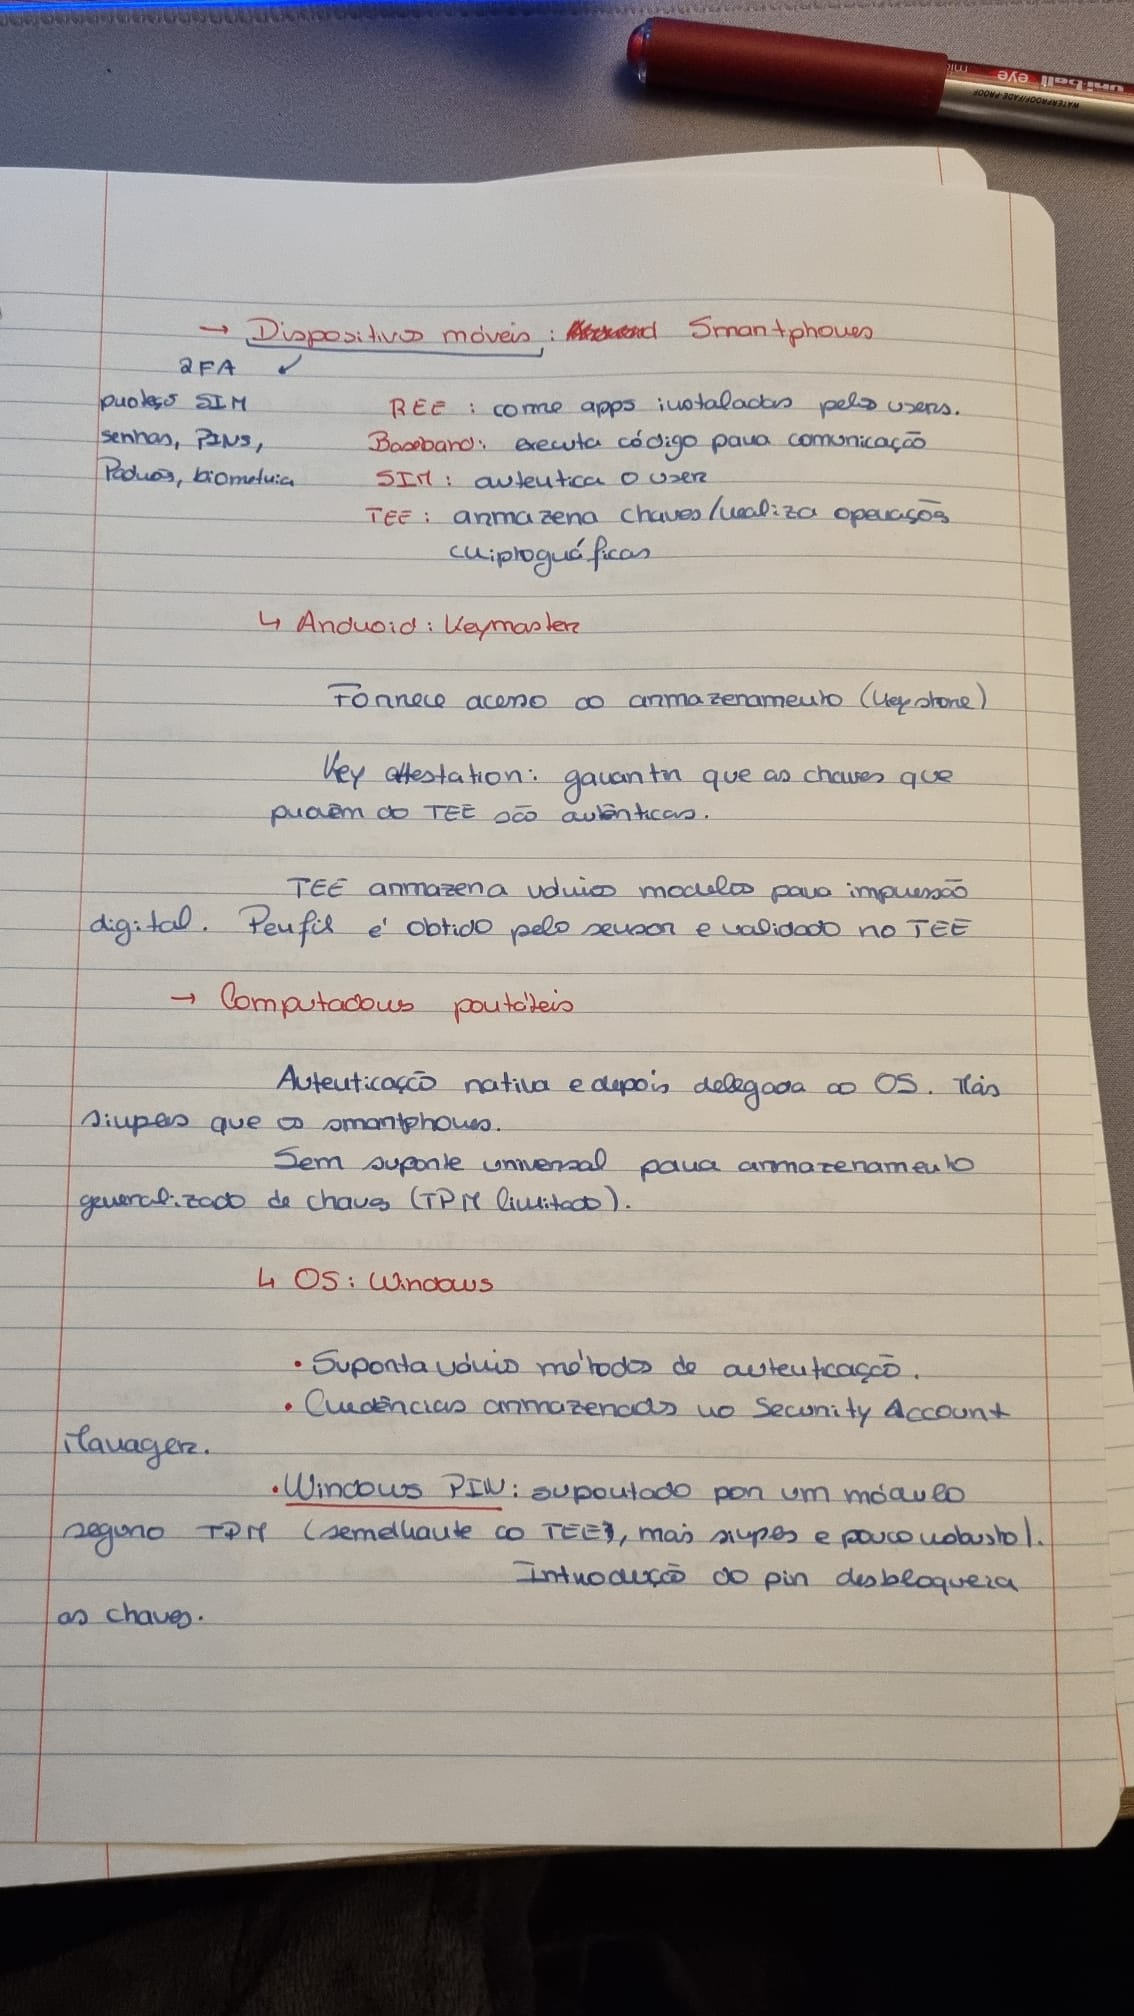 uni-ball eye mic
WATERPROOF/FADE-PROOF
→ Dispositivos móveis: Smartphones
2FA
proteção SIM
senhas, PINS,
Padrões, biometria
REE: corre apps instaladas pelos users.
Baseband: executa código para comunicação
SIM: autentica o user
TEE: armazena chaves/realiza operações
criptográficas
↳ Android: Keymaster
Fornece acesso ao armazenamento (Keystore)
Key attestation: garantir que as chaves que
provêm do TEE são autênticas.
TEE armazena vários modelos para impressão
digital. Perfil é obtido pelo sensor e validado no TEE
→ Computadores portáteis
Autenticação nativa e depois delegada ao OS. Mais
simples que os smartphones.
Sem suporte universal para armazenamento
generalizado de chaves (TPM limitado).
↳ OS: Windows
• Suporta vários métodos de autenticação.
• Credências armazenadas no Security Account
Manager.
• Windows PIN: suportado por um módulo
seguro TPM (semelhante ao TEE), mais simples e pouco robusto).
Introdução do pin desbloqueia
as chaves.